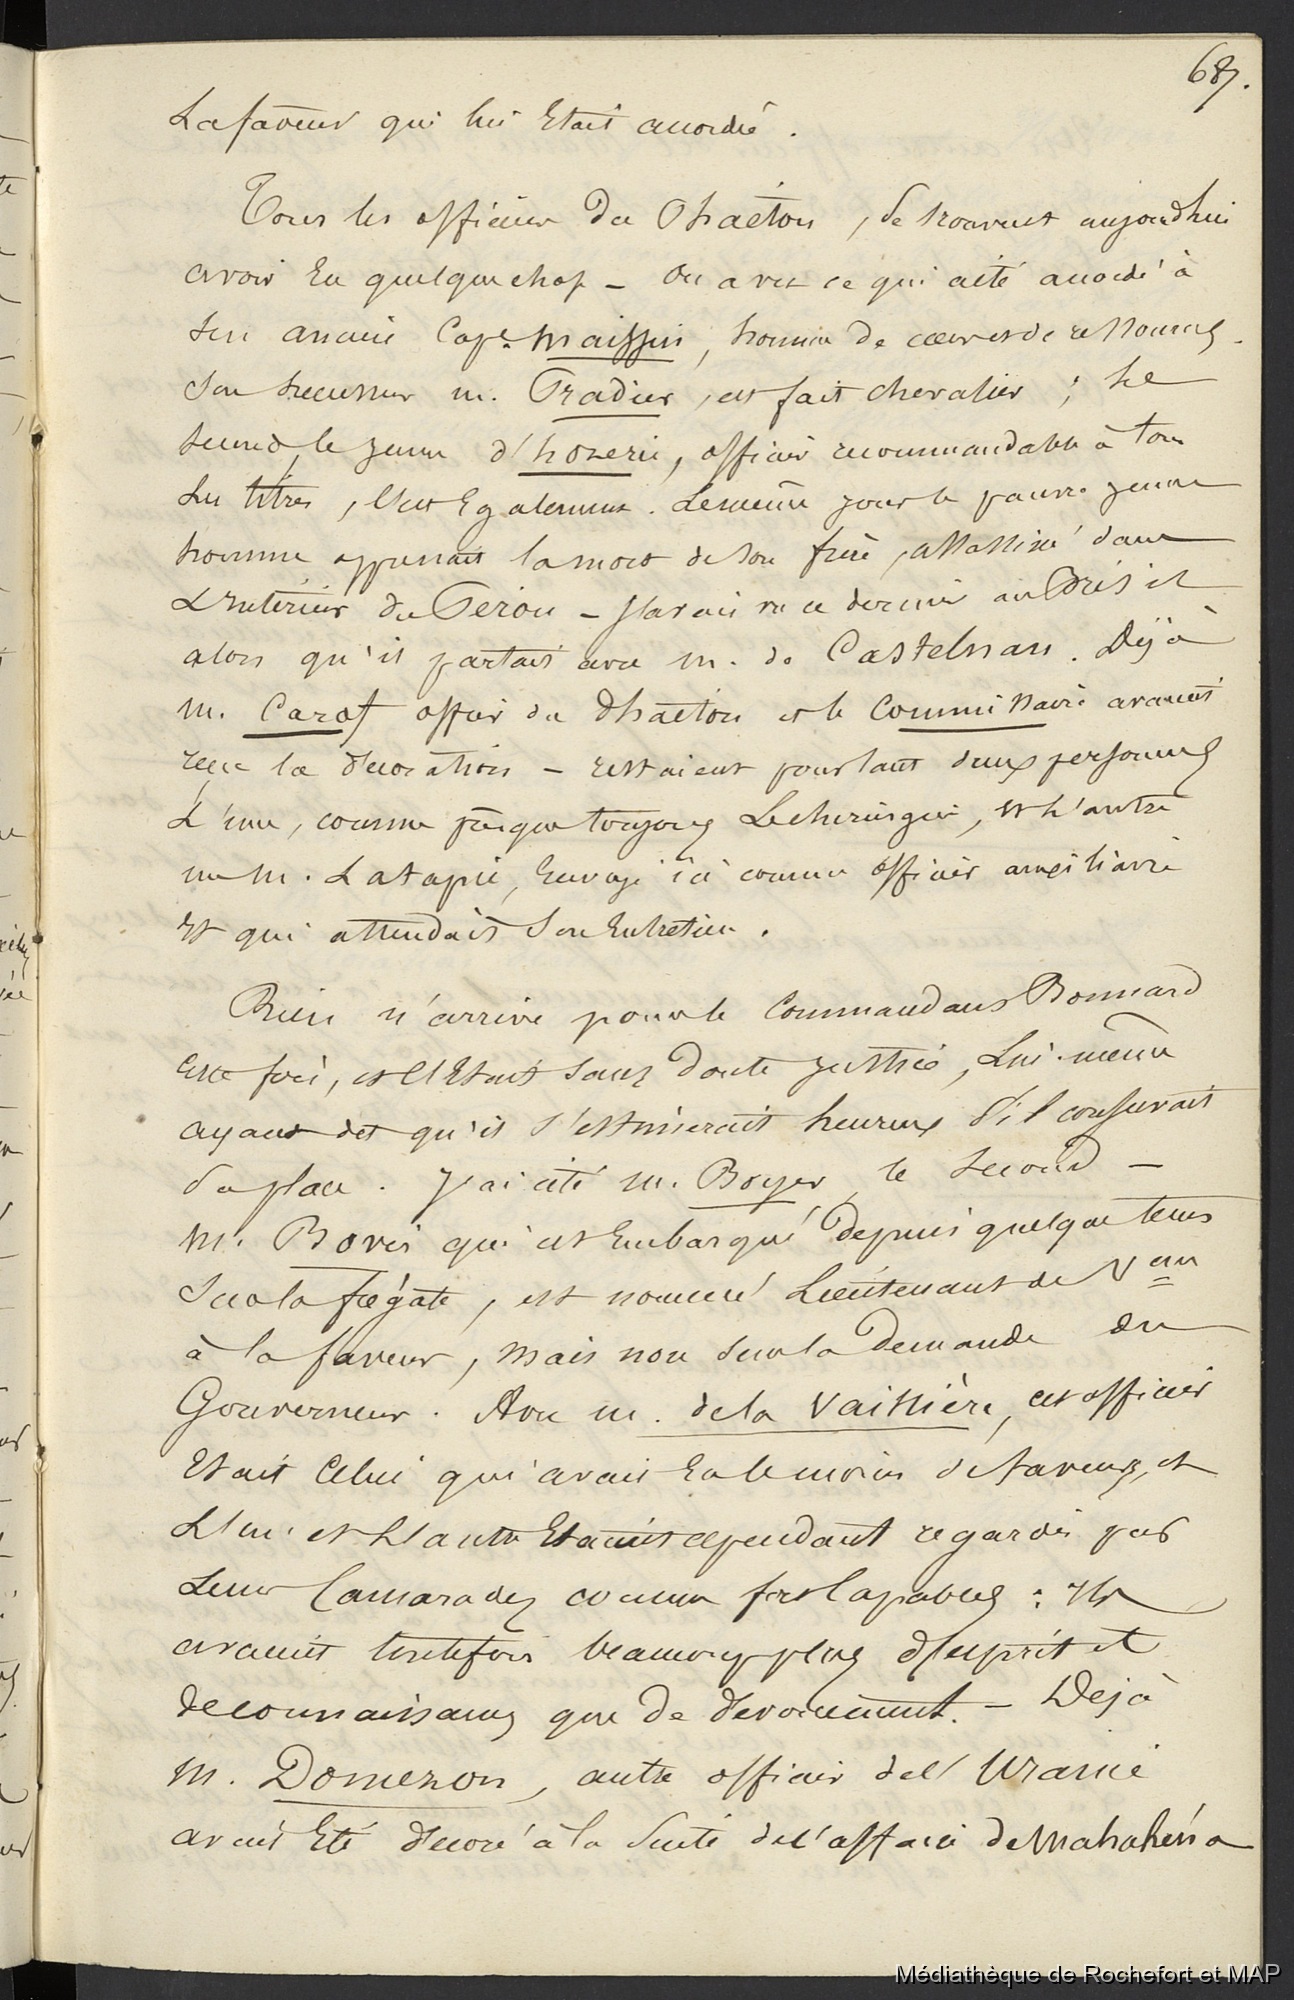 687.
La faveur qui lui Etait accordée.
Tous les officiers du Phaëton, se trouvent aujourdhui
avoir Eu quelque chose – On a vu ce qui a été accordé à
son ancien Cape. Maissin, homme de cœur et de ressources.
Son successeur m. Pradier, est fait chevalier ; Le
second, le jeune d'hozerie, officier recommandable à tous
les titres, l'est Egalement. Le même jour le pauvre jeune
homme apprenait la mort de son frère, assassiné dans
L'Intérieur du Pérou – J'avais vu ce dernier au Brésil
alors qu'il partait avec m. de Castelnau. Déjà
m. Carof officier du Phaëton et le Commissaire avaient
reçu la décoration – restaient pourtant deux personnes
L'une, comme presque toujours Le chirurgien, Et L'autre
un m. Latapie, Envoyé ici comme officier auxiliaire
Et qui attendait Son Entretien.
Rien n'arrive pour le Commandant Bonnard
cette fois, et C'Etait sans doute justice, Lui-même
ayant dit qu'il s'estimerait heureux s'il conservait
Sa place. J'ai cité m. Boyer, le second –
m. Bovis qui est Embarqué depuis quelque tems
Sur la frégate, est nommé Lieutenant de Veau
à la faveur, mais non sur la demande du
Gouverneur. Avec m. de la Vaissière, cet officier
Etait Celui qui avait Eu le moins de faveurs, et
L'un et L'autre Etaient cependant regardés par
Leurs Camarades comme fort Capables : Ils
avaient toutefois beaucoup plus d'esprit et
de connaissances que de dévouement. – Déjà
m. Domezon, autre officier de l'Uranie
avait Eté décoré à la Suite de l'affaire de Mahahéna
Médiathèque de Rochefort et MAP